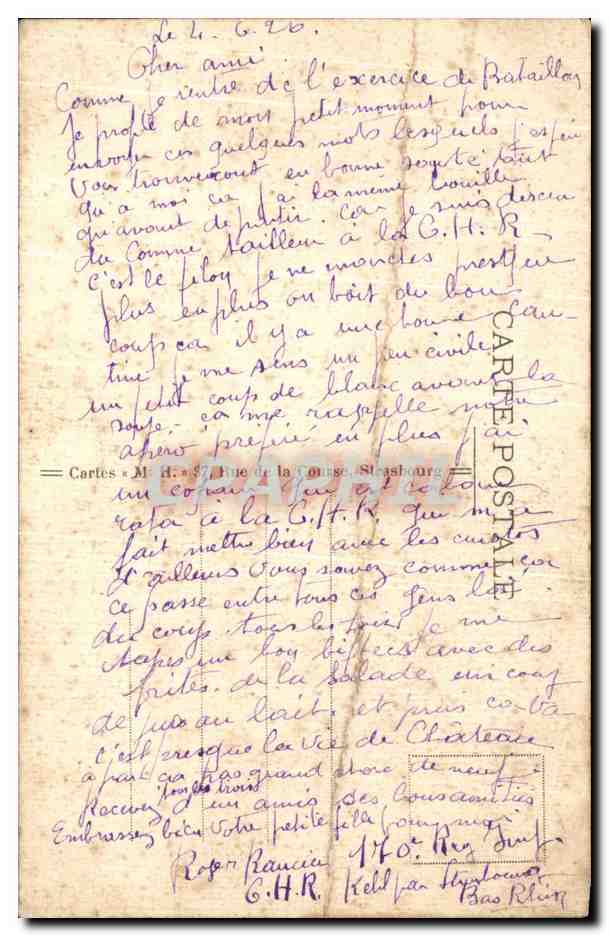 Le 4.6.26.
Cher ami
Comme je rentre de l'exercice de Bataillon
Je profite de mon petit moment pour
envoyer ces quelques mots lesquels j'espère
Vous trouveront en bonne santé tant
qu'a moi ca j'ai la même bouille
qu'avant de partir. car je suis descen
du comme tailleur à la C.H.R
c'est le filon je ne marches presque
plus en plus on boit du bon
coup ca il y a une bonne can-
tine je me sens un peu civile
un petit coup de blanc avant la
soupe. ca me rappelle notre
apero préféré en plus j'ai
un copain qui est capo
rata à la C.H.R. qui me
fait mettre bien avec les cuistos
d'ailleurs vous savez comme ca
ce passe entre tous ces gens là
du coup tous les soirs je me
tapes un bon bifteck avec des
frites. de la salade un coup
de jus au lait. et puis ca va
c'est presque la vie de Château
a part ca pas grand chose de neuf.
Recevez tous les trois d'un amis ses bons amitiés
Embrassez bien votre petite fille pour moi
Roger 170e Reg Inf.
C.H.R. Kehl par Strasbourg
Bas Rhin
CARTE POSTALE
Cartes « M. H. » 37, Rue de la Course, Strasbourg
CPAPHIL